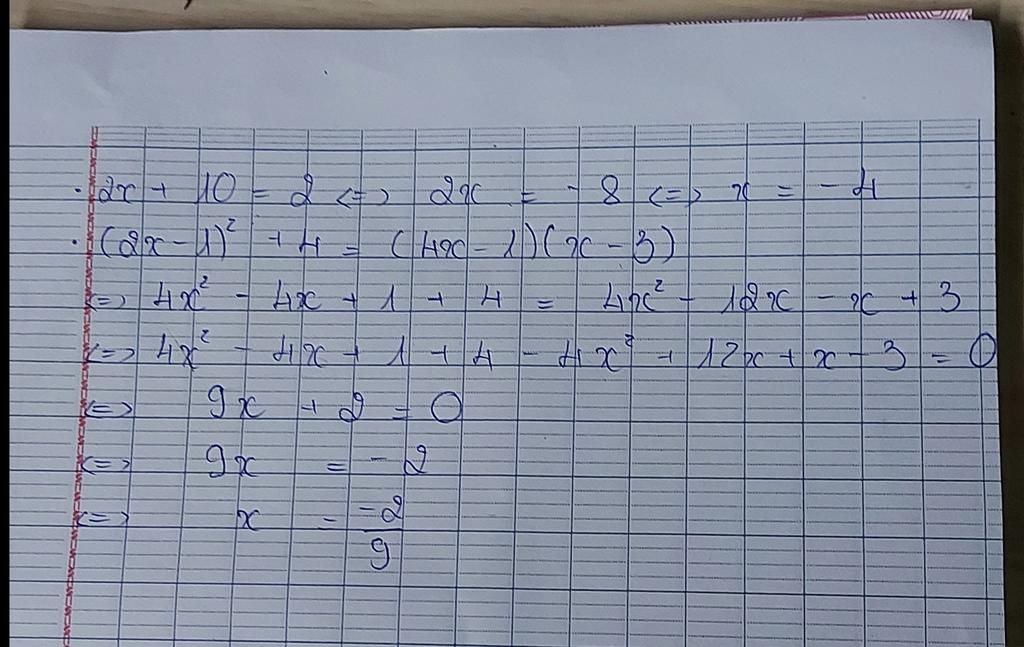 . 2x + 10 = 2 <=> 2x = -8 <=> x = -4
. (2x-1)² + 4 = (4x-1)(x-3)
<=> 4x² - 4x + 1 + 4 = 4x² - 12x - x + 3
<=> 4x² - 4x + 1 + 4 - 4x² + 12x + x - 3 = 0
<=> 9x + 2 = 0
<=> 9x = -2
<=> x = -2/9